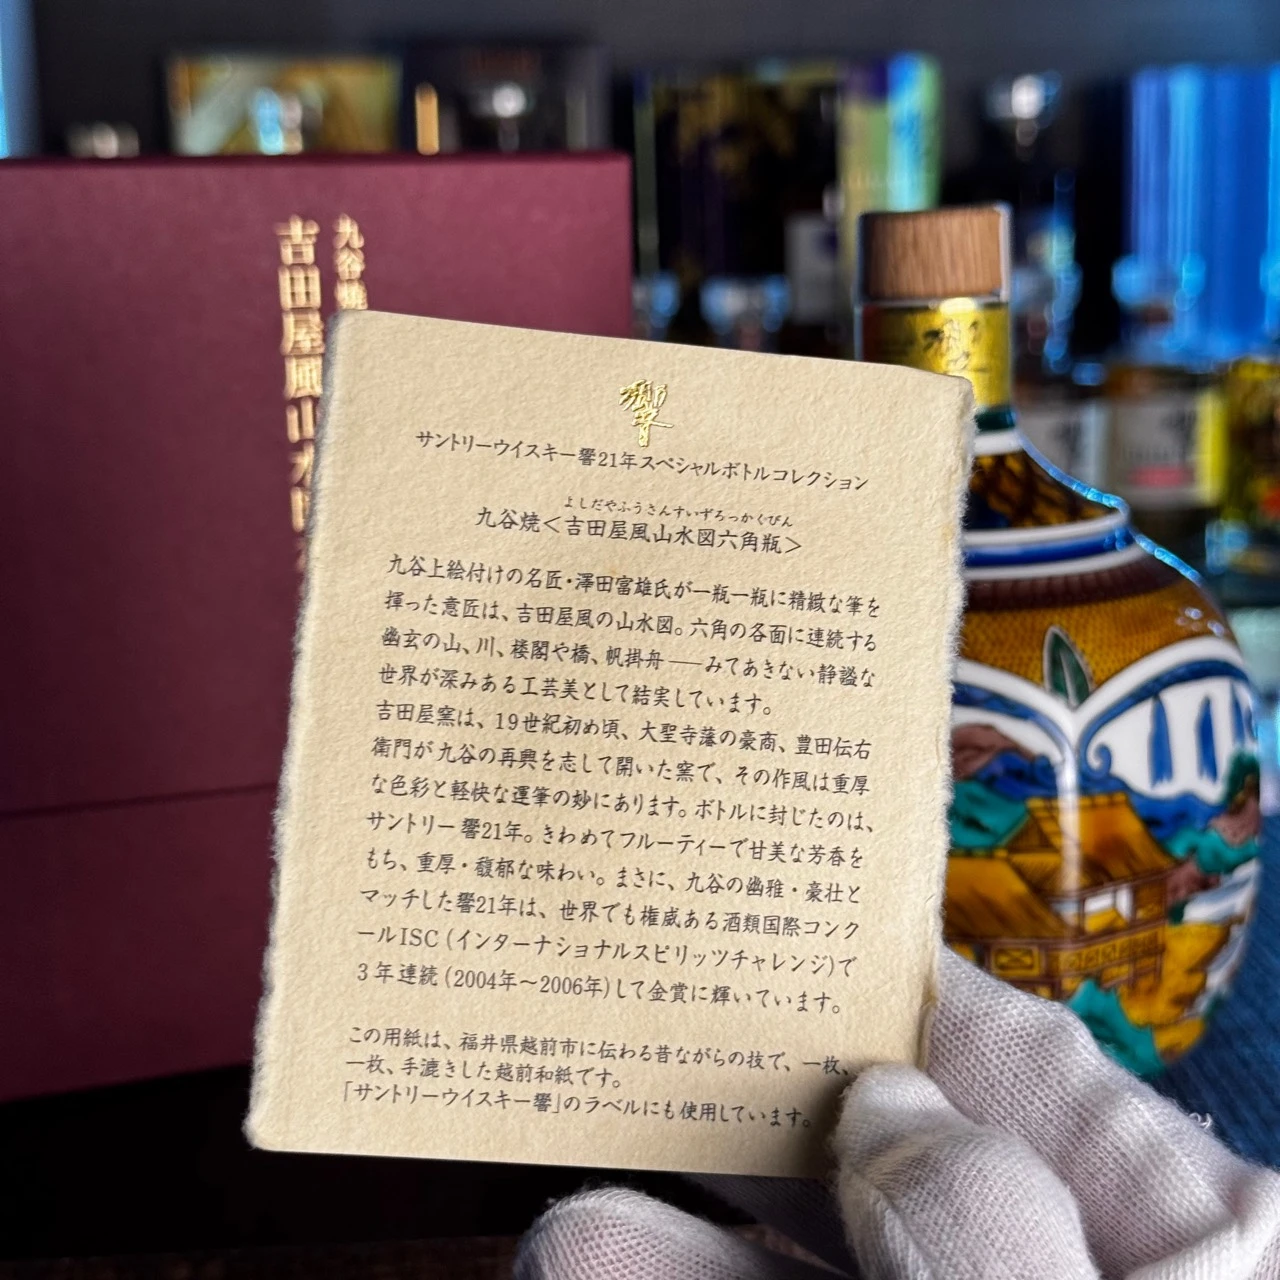 九谷焼
吉田屋風山水
響
響
サントリーウイスキー響21年スペシャルボトルコレクション
よしだやふうさんすいずろっかくびん
九谷焼＜吉田屋風山水図六角瓶＞
九谷上絵付けの名匠・澤田富雄氏が一瓶一瓶に精緻な筆を
揮った意匠は、吉田屋風の山水図。六角の各面に連続する
幽玄の山、川、楼閣や橋、帆掛舟――みてあきない静謐な
世界が深みある工芸美として結実しています。
吉田屋窯は、19世紀初め頃、大聖寺藩の豪商、豊田伝右
衛門が九谷の再興を志して開いた窯で、その作風は重厚
な色彩と軽快な運筆の妙にあります。ボトルに封じたのは、
サントリー響21年。きわめてフルーティーで甘美な芳香を
もち、重厚・馥郁な味わい。まさに、九谷の幽雅・豪壮と
マッチした響21年は、世界でも権威ある酒類国際コンク
ールISC(インターナショナルスピリッツチャレンジ)で
3年連続(2004年～2006年)して金賞に輝いています。
この用紙は、福井県越前市に伝わる昔ながらの技で、一枚、
一枚、手漉きした越前和紙です。
「サントリーウイスキー響」のラベルにも使用しています。